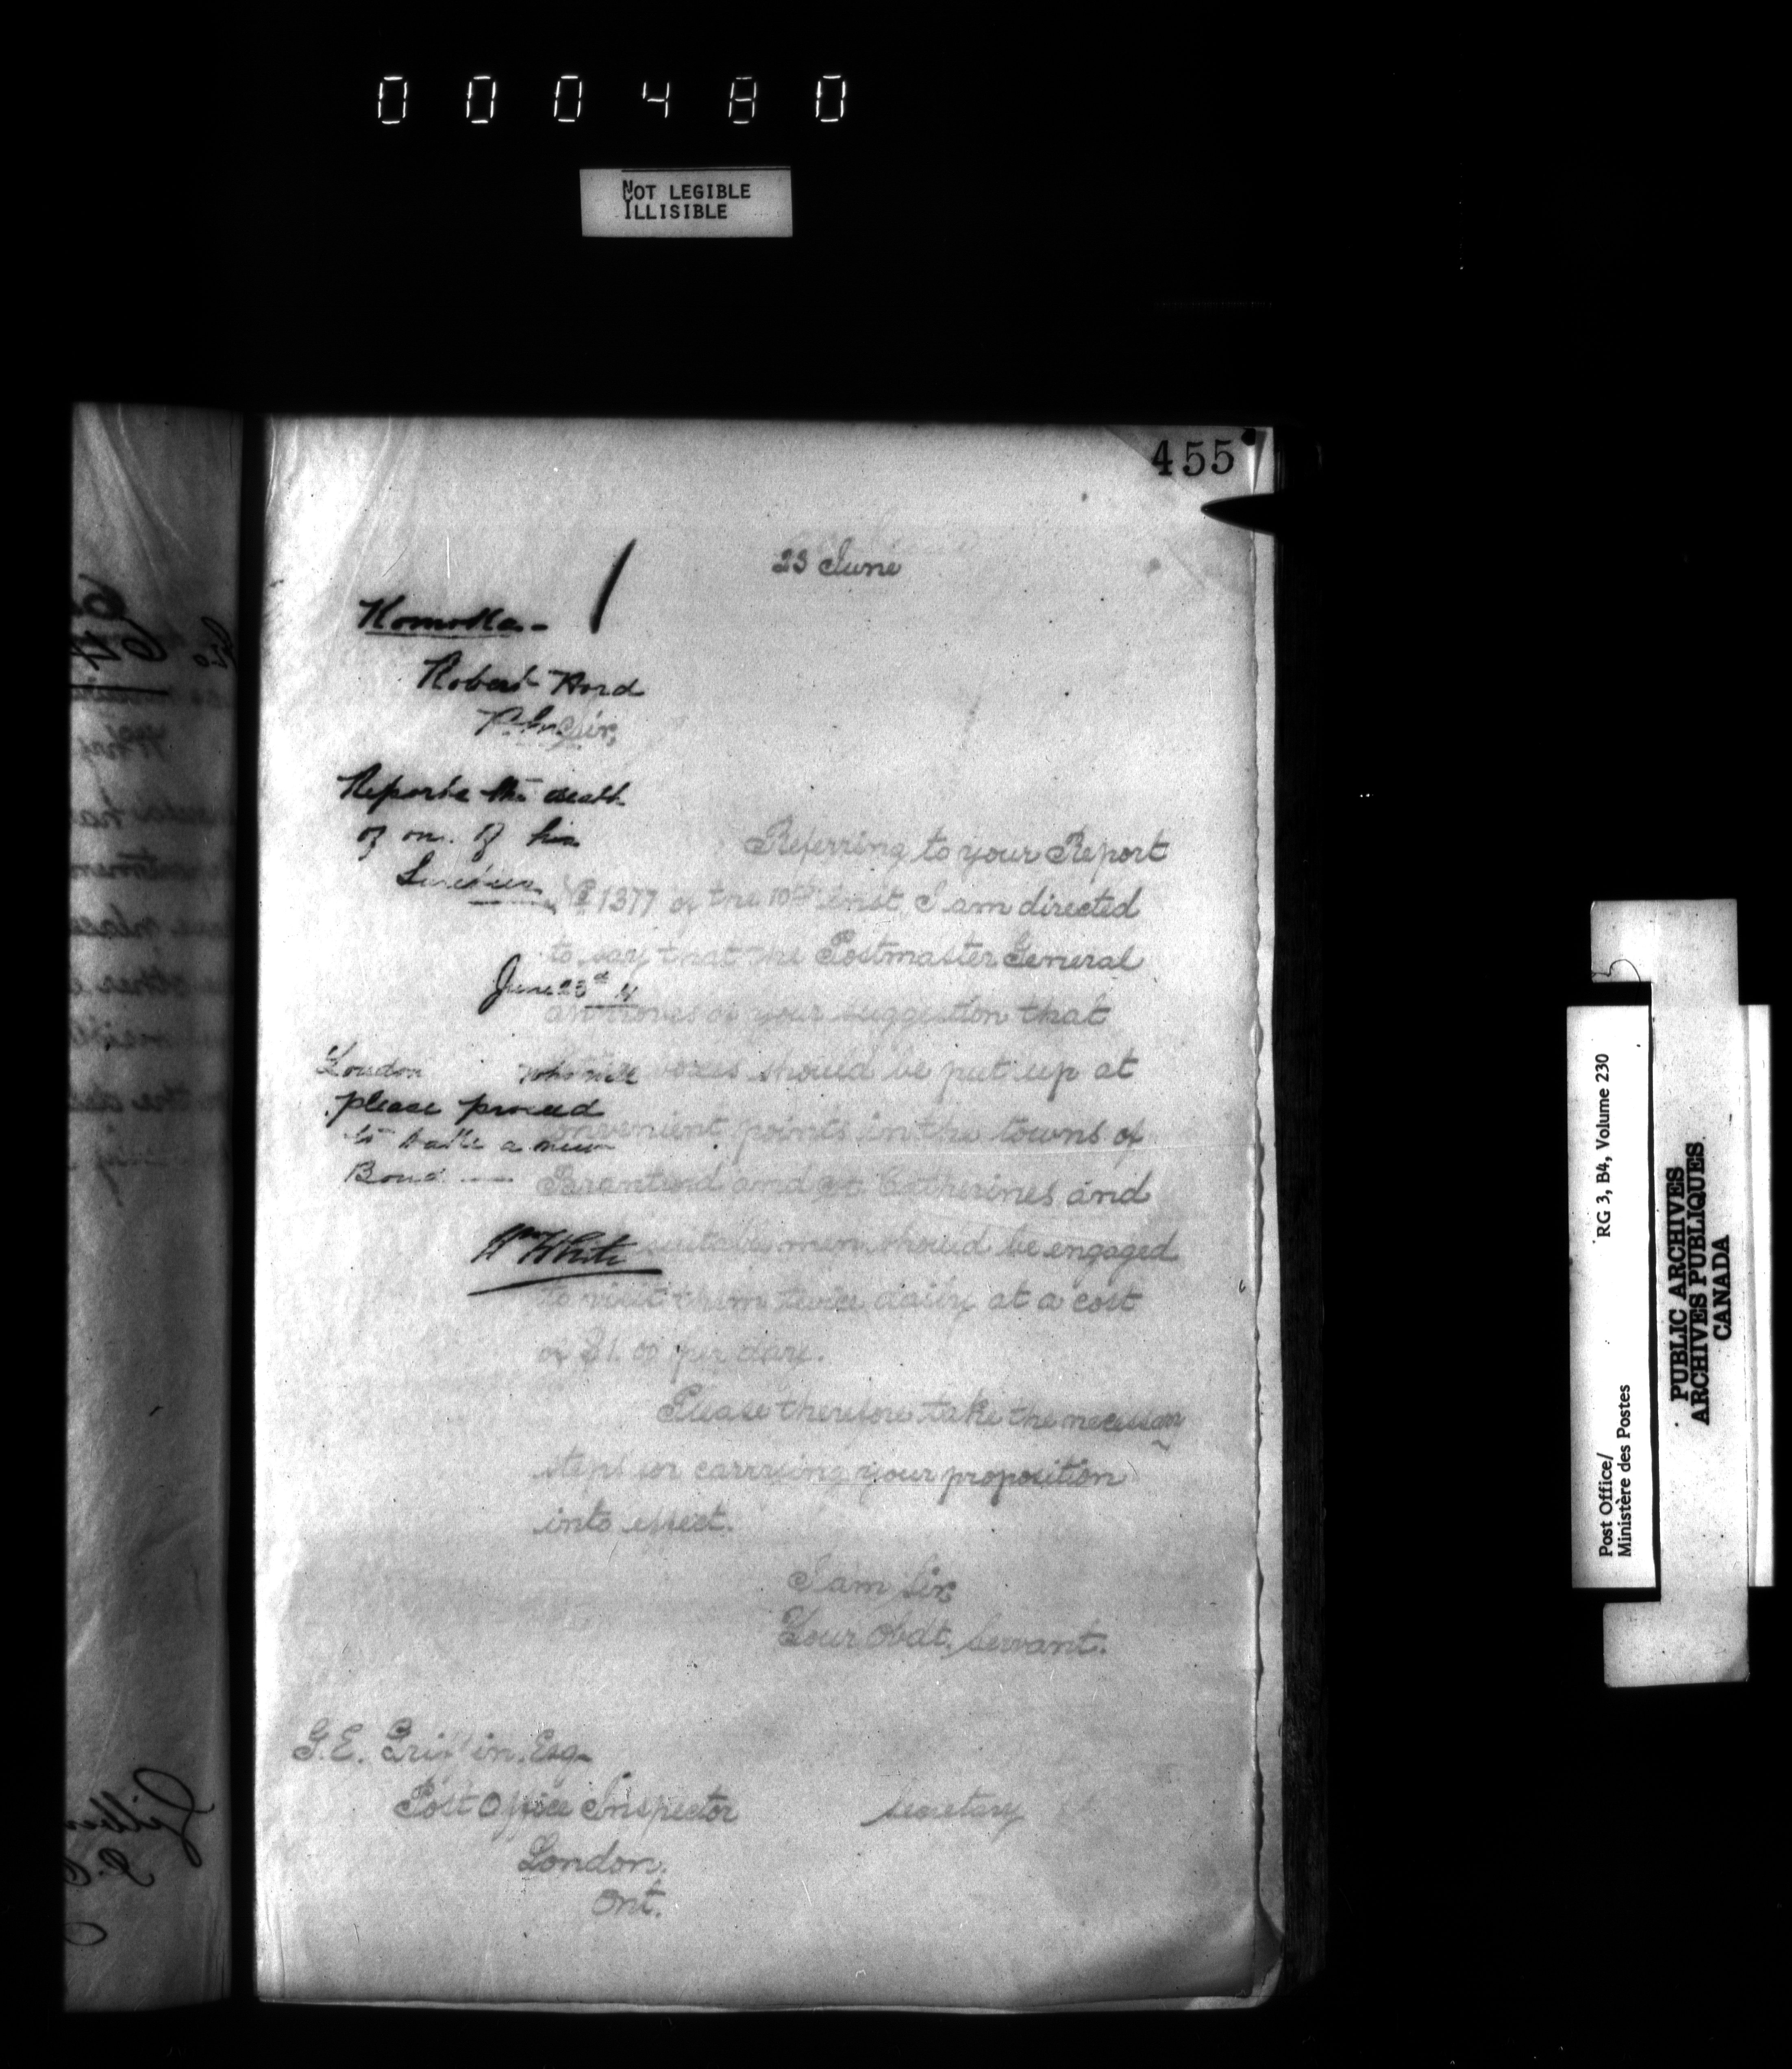 000480
NOT LEGIBLE
ILLISIBLE
455
23 June
Komoka -
Robert Hord
P.M.
Sir,
Reports the death
of one of his
Sureties
June 23rd
London who will
please proceed
to take a new
Bond —
Wm White
Referring to your Report
No 1377 of the 10th inst, I am directed
to say that the Postmaster General
approves of your suggestion that
boxes should be put up at
convenient points in the towns of
Brantford and St Catherines and
suitable men should be engaged
to visit them twice daily at a cost
of $1.00 per day.
Please therefore take the necessary
steps for carrying your proposition
into effect.
I am Sir,
Your Obdt. Servant.
G.E. Griffin. Esq
Post Office Inspector
London.
Ont.
Secretary
Post Office/
Ministère des Postes
RG 3, B4, Volume 230
PUBLIC ARCHIVES
ARCHIVES PUBLIQUES
CANADA